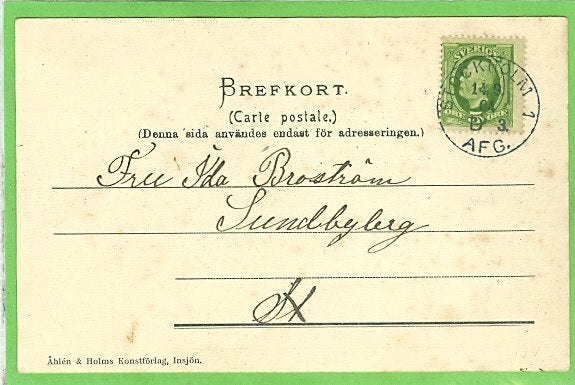 SVERIGE
STOCKHOLM 1
14 9
AFG.
BREFKORT.
(Carte postale.)
(Denna sida användes endast för adresseringen.)
Fru Ida Broström
Sundbyberg
Åhlén & Holms Konstförlag, Insjön.